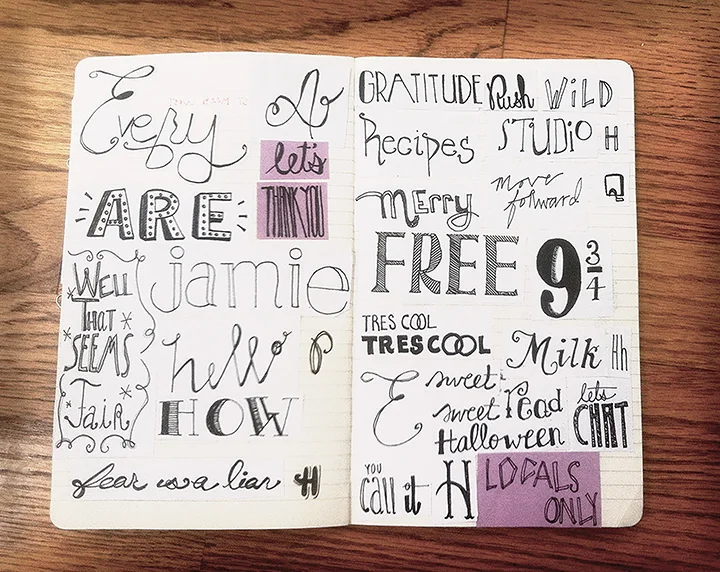 Every
let's
THANK YOU
ARE
WELL
THAT
SEEMS
FAIR
jamie
hello
P
HOW
fear is a liar H
GRATITUDE Push WILD
Recipes STUDIO H
Merry move
forward
Q
FREE 9 3/4
TRES COOL
TRES COOL
Milk Hh
E sweet
sweet read
Halloween
let's
CHAT
YOU
call it
H
LOCALS
ONLY